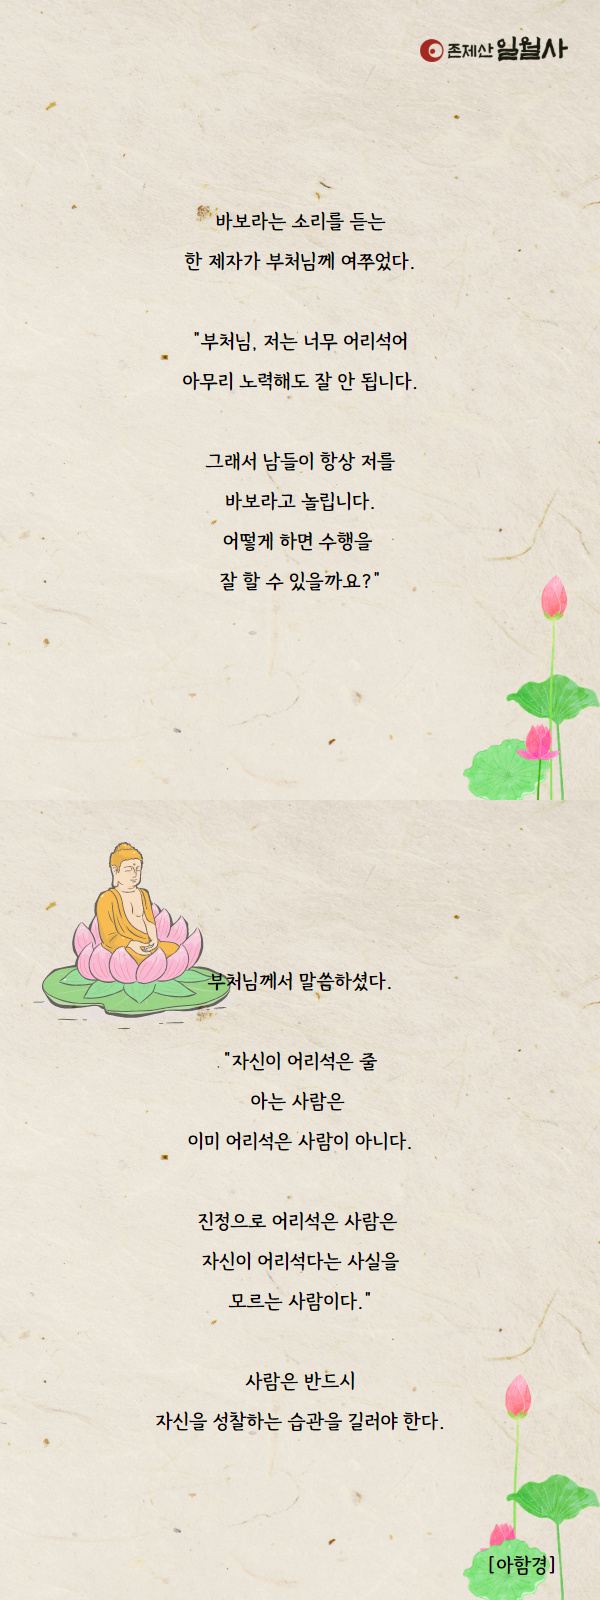 존제산 일월사
바보라는 소리를 듣는
한 제자가 부처님께 여쭈었다.
"부처님, 저는 너무 어리석어
아무리 노력해도 잘 안 됩니다.
그래서 남들이 항상 저를
바보라고 놀립니다.
어떻게 하면 수행을
잘 할 수 있을까요?"
부처님께서 말씀하셨다.
"자신이 어리석은 줄
아는 사람은
이미 어리석은 사람이 아니다.
진정으로 어리석은 사람은
자신이 어리석다는 사실을
모르는 사람이다."
사람은 반드시
자신을 성찰하는 습관을 길러야 한다.
[아함경]